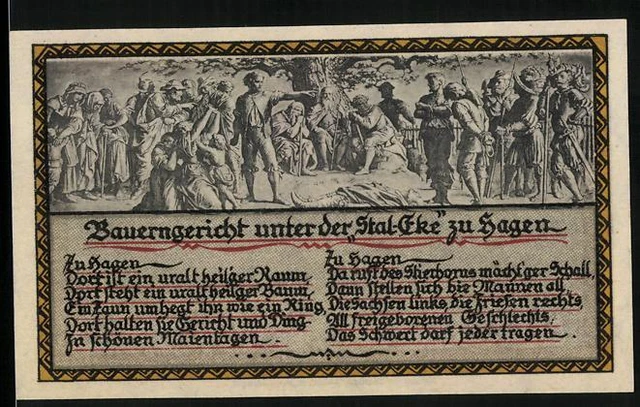 Bauerngericht unter der „Stal-Eke" zu Hagen
Zu Hagen
Dort ist ein uralt heil'ger Raum,
Dort steht ein uralt heil'ger Baum,
Ein Zaun umhegt ihn wie ein Ring,
Dort halten sie Gericht und Ding
In schönen Maientagen.
Zu Hagen
Da ruft des Stierhorns mächt'ger Schall,
Dann stellen sich die Mannen all,
Die Sachsen links, die Friesen rechts,
All freigeborenen Geschlechts,
Das Schwert darf jeder tragen.